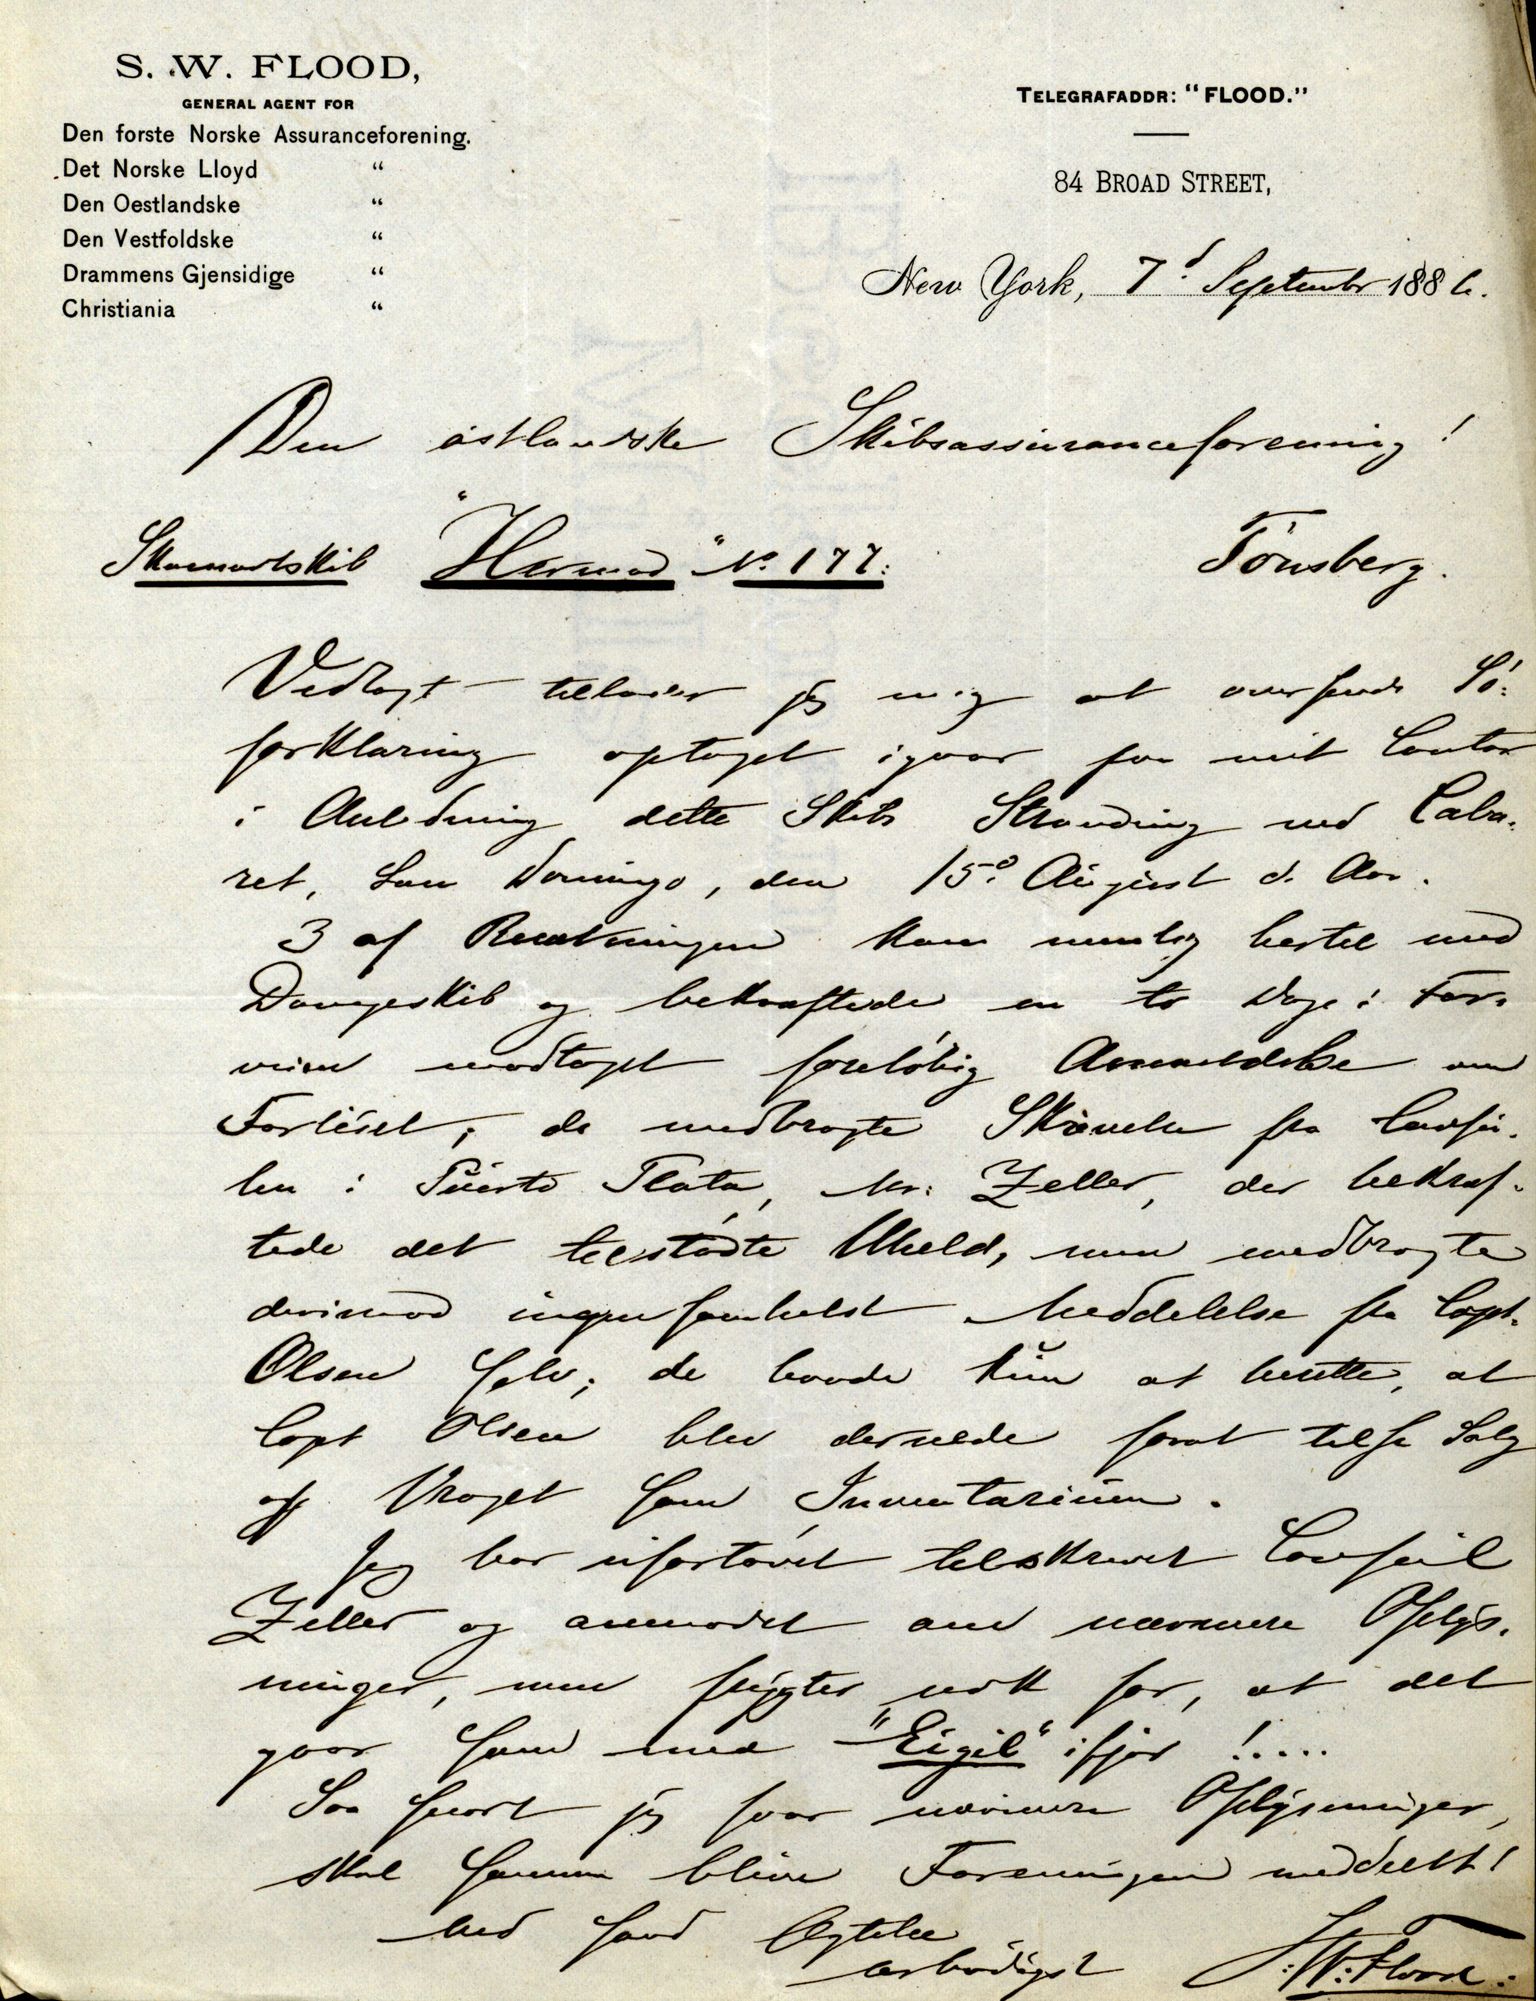 S. W. FLOOD,
GENERAL AGENT FOR
Den forste Norske Assuranceforening.
Det Norske Lloyd "
Den Oestlandske "
Den Vestfoldske "
Drammens Gjensidige "
Christiania "
TELEGRAFADDR: "FLOOD."
84 BROAD STREET,
New York, 7d September 1886.
Den østlandske Skibsassuranceforening!
Tönsberg.
Skonnertskib "Hermod" No 177:
Vedlagt tillader jeg mig at oversende Sö-
forklaring optaget igaar paa mit Contor
i Anledning dette Skibs Stranding ved Caba-
ret, San Domingo, den 15de August d. Aar.
3 af Besætningen kom nemlig hertil med
Dampskib og bekræftede en to Dage i For-
veien modtaget foreløbig Anmeldelse om
Forliset; de medbragte Skrivelse fra Consu-
len i Puerto Plata, Mr: Zeller, der bekræf-
tede det tilstødte Uheld, men medbragte
derimod ingensomhelst Meddelelse fra Capt.
Olsen selv; de havde kun at berette, at
Capt Olsen blev dernede forat tilse Salg
af Vraget som Inventarium.
Jeg har ufortövet tilskrevet Consul
Zeller og anmodet om nærmere Oplys-
ninger, men frygter nok for, at det
gaar som med "Eigil" ifjor !....
Saa snart jeg faar nærmere Oplysninger,
skal samme blive Foreningen meddeelt!
Med sand Agtelse
ærbødigst S. W. Flood.